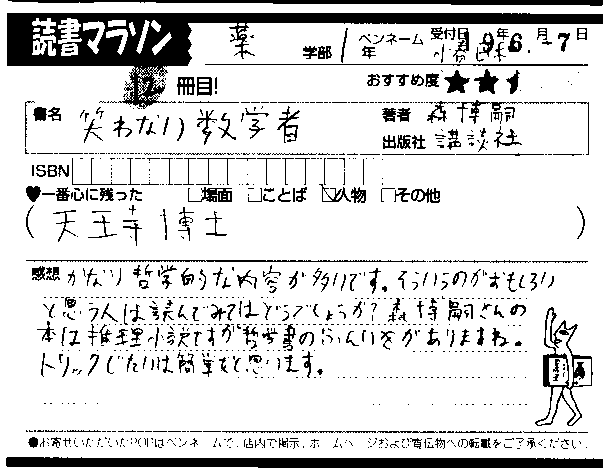 読書マラソン
薬 学部/ 年 ペンネーム 小春日和 受付日 19年6月-7日
12 冊目! おすすめ度 ★★
書名 笑わない数学者 著者 森博嗣
出版社 講談社
ISBN
♥一番心に残った □場面 □ことば ☑人物 □その他
(天王寺博士)
感想 かなり哲学的な内容が多いです。そういうのがおもしろい
と思う人は読んでみてはどうでしょうか? 森博嗣さんの
本は推理小説ですが哲学書のふんいきがありますね。
トリックじたいは簡単だと思います。
●お寄せいただいたPOPはペンネームで、店内で掲示、ホームページおよび宣伝物への転載をご了承ください。